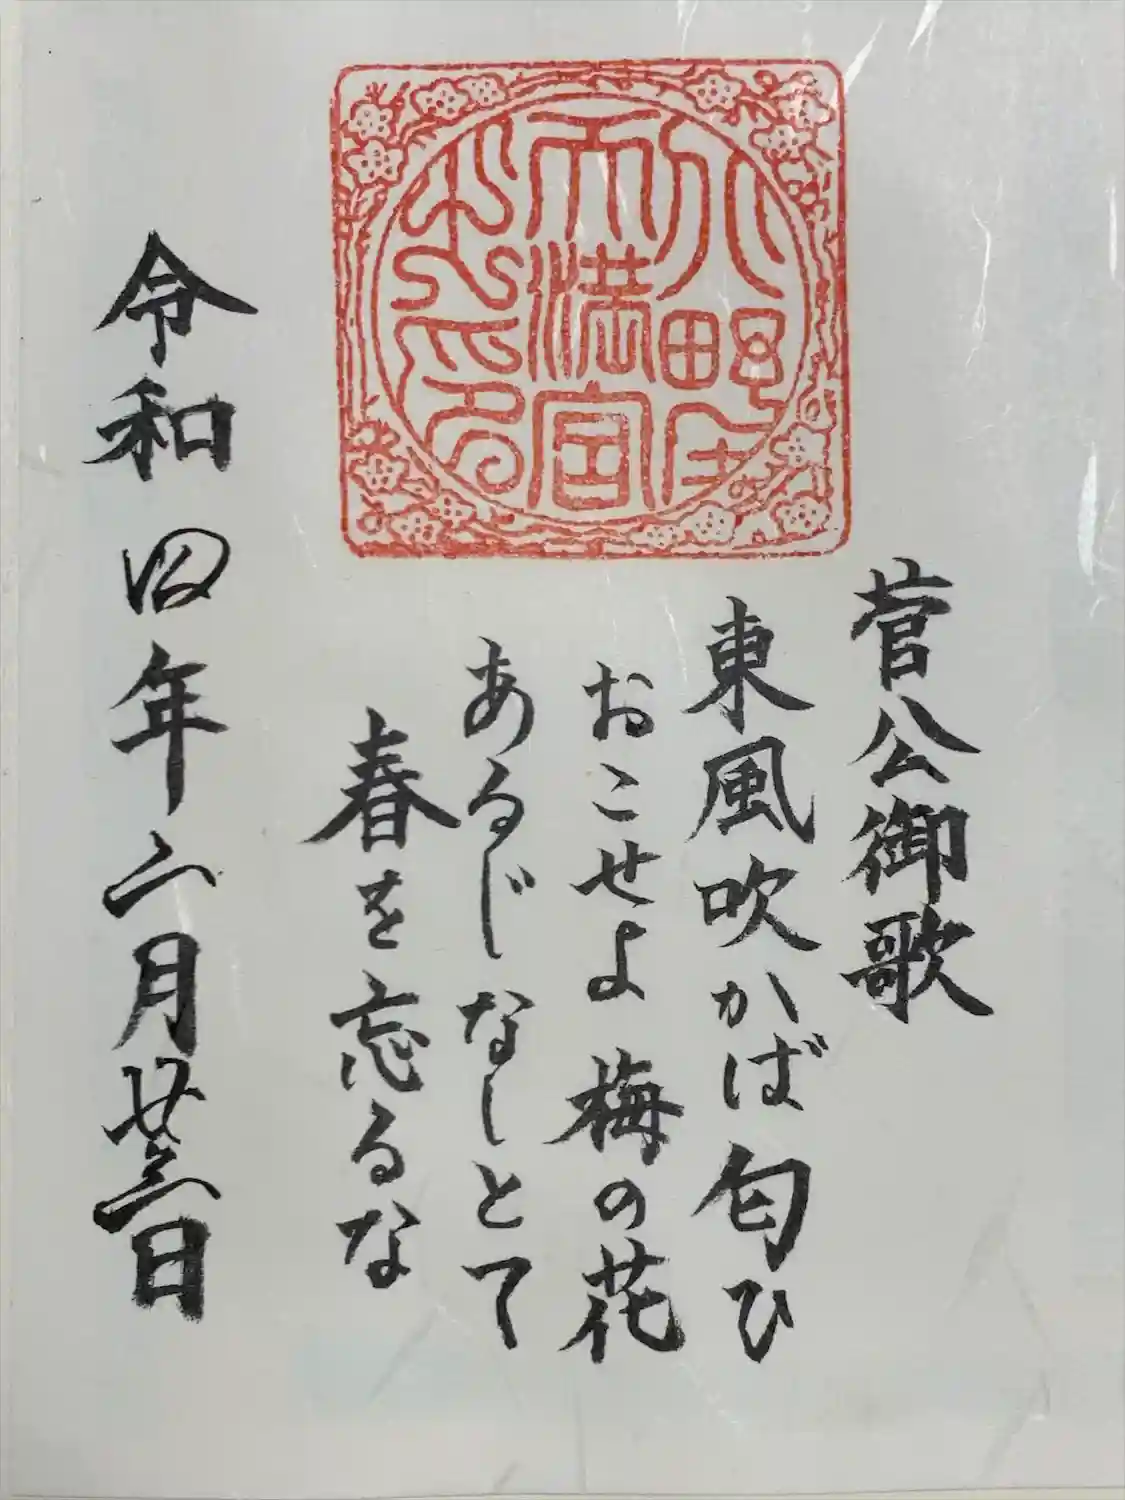 野
天満宮
菅公御歌
東風吹かば匂ひ
おこせよ梅の花
あるじなしとて
春を忘るな
令和四年二月廿三日